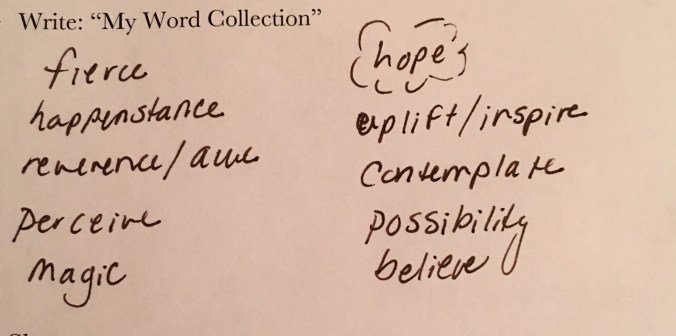 Write: “My Word Collection”
fierce
happenstance
reverence/awe
perceive
magic
hope
uplift/inspire
contemplate
possibility
believe